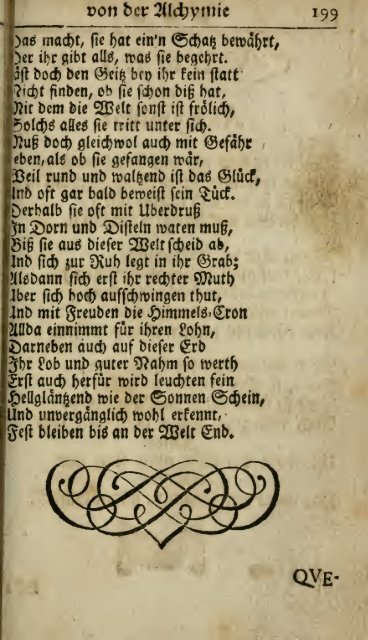 von der Alchymie 199
Das macht, sie hat ein'n Schatz bewährt,
Der ihr gibt alls, was sie begehrt.
Läst doch den Geitz bey ihr kein statt
Nicht finden, ob sie schon diß hat,
Mit dem die Welt sonst ist frölich,
Solchs alles sie tritt unter sich.
Muß doch gleichwol auch mit Gefähr
Leben, als ob sie gefangen wär,
Weil rund und waltzend ist das Glück,
Und oft gar bald beweist sein Tück.
Derhalb sie oft mit Uberdruß
In Dorn und Disteln waten muß,
Biß sie aus dieser Welt scheid ab,
Und sich zur Ruh legt in ihr Grab;
Alsdann sich erst ihr rechter Muth
Aber sich hoch aufschwingen thut,
Und mit Freuden die Himmels-Cron
Allda einnimmt für ihren Lohn,
Darneben auch auf dieser Erd
Ihr Lob und guter Nahm so werth
Erst auch herfür wird leuchten fein
Hellgläntzend wie der Sonnen Schein,
Und unvergänglich wohl erkennt,
Fest bleiben bis an der Welt End.
QVE-